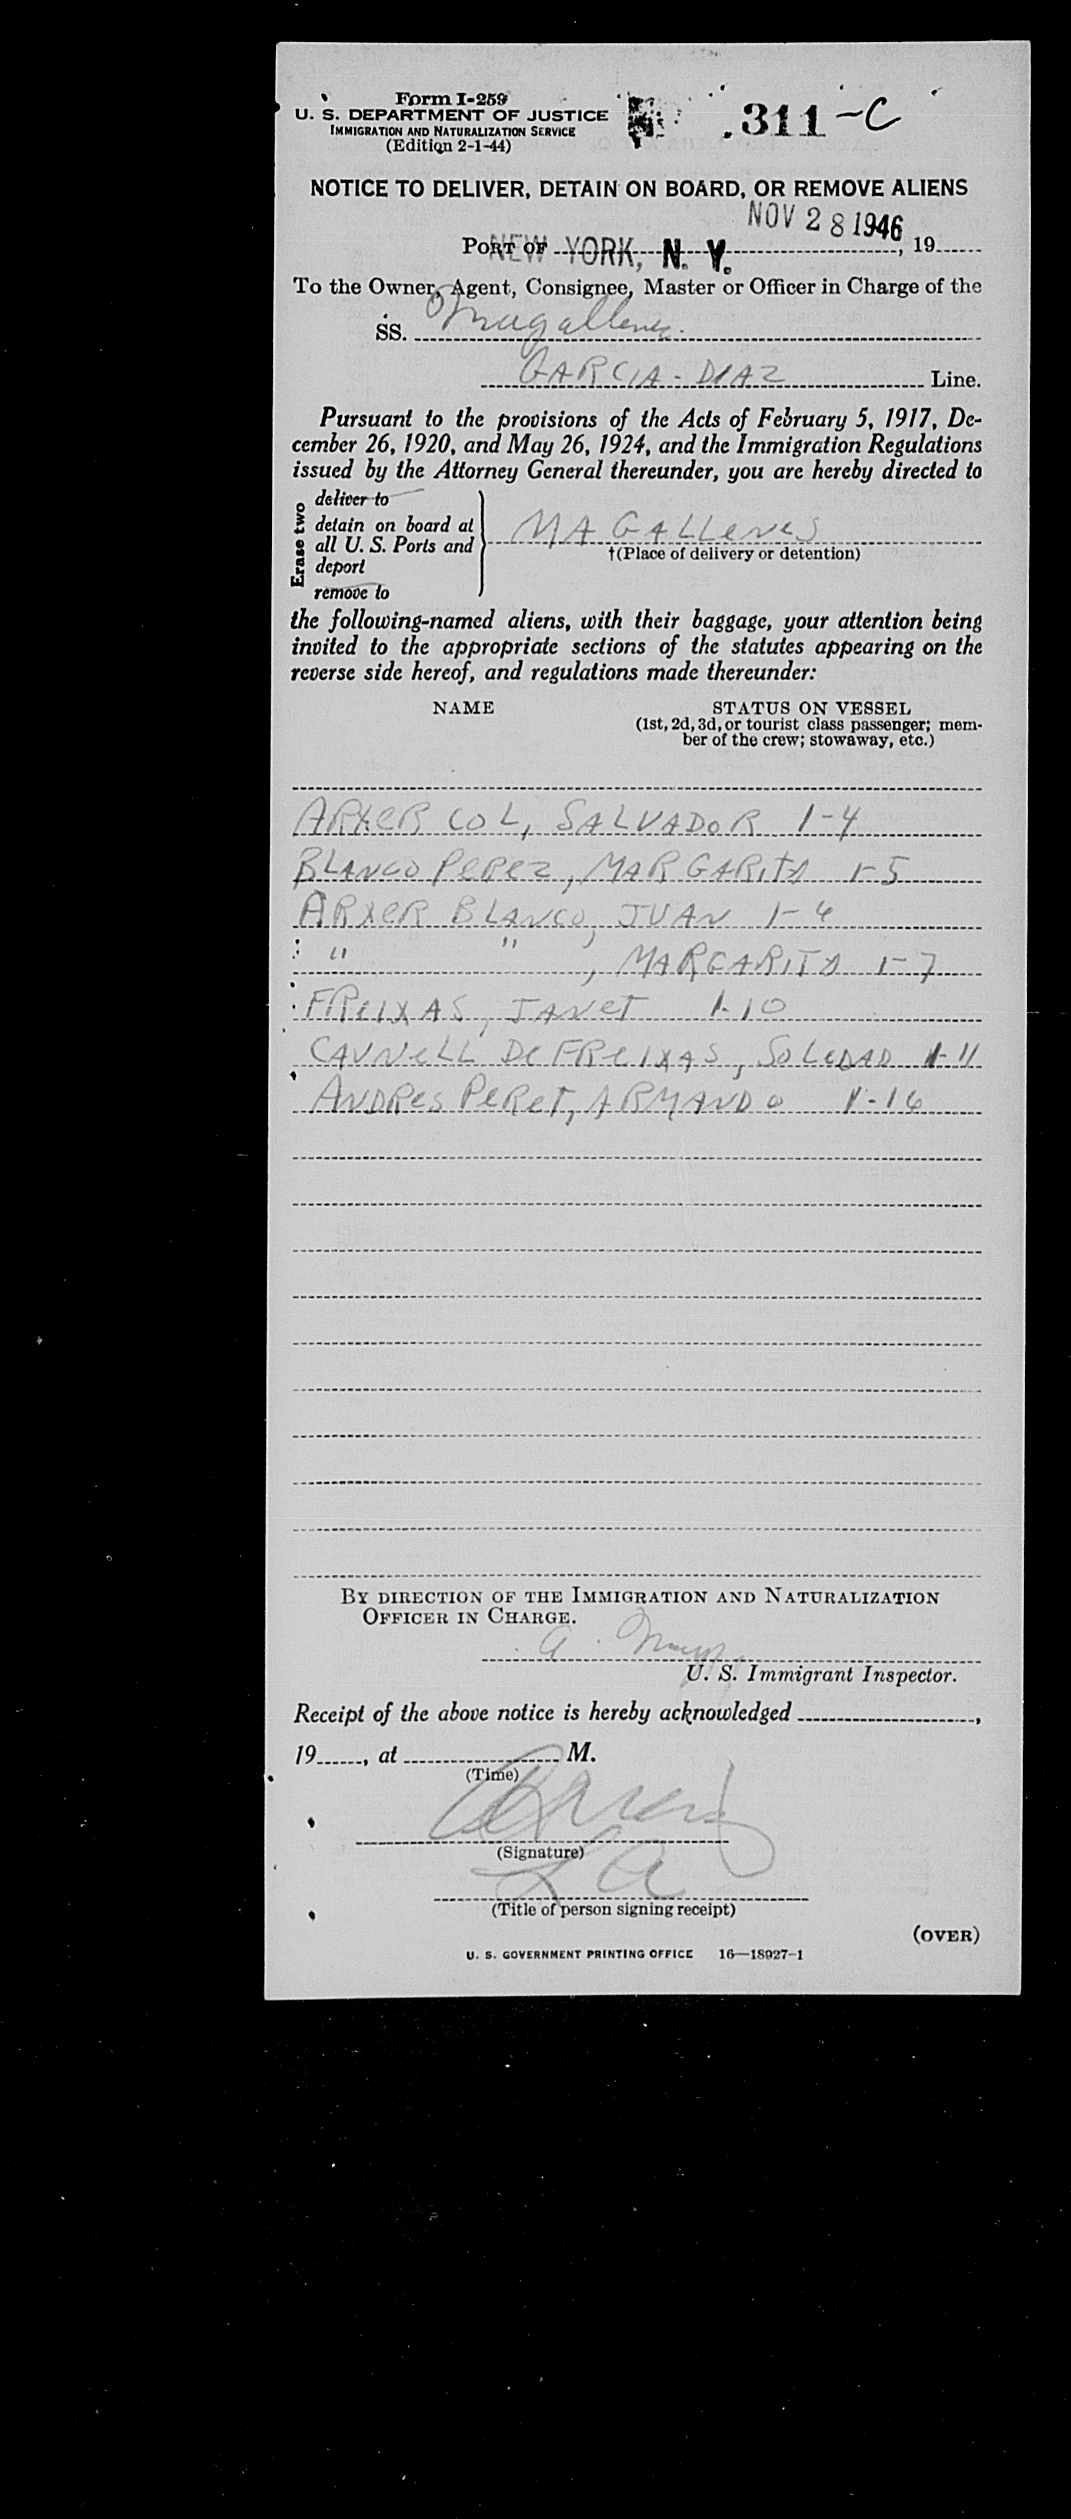 Form I-259
U. S. DEPARTMENT OF JUSTICE
IMMIGRATION AND NATURALIZATION SERVICE
(Edition 2-1-44)
311-C
NOTICE TO DELIVER, DETAIN ON BOARD, OR REMOVE ALIENS
NOV 28 1946
PORT OF NEW YORK, N. Y. , 19
To the Owner, Agent, Consignee, Master or Officer in Charge of the
SS. Magallenes
GARCIA-DIAZ Line.
Pursuant to the provisions of the Acts of February 5, 1917, De-
cember 26, 1920, and May 26, 1924, and the Immigration Regulations
issued by the Attorney General thereunder, you are hereby directed to
Erase two
deliver to
detain on board at
all U. S. Ports and
deport
remove to
MAGALLENES
†(Place of delivery or detention)
the following-named aliens, with their baggage, your attention being
invited to the appropriate sections of the statutes appearing on the
reverse side hereof, and regulations made thereunder:
NAME STATUS ON VESSEL
(1st, 2d, 3d, or tourist class passenger; mem-
ber of the crew; stowaway, etc.)
ARXER COL, SALVADOR 1-4
BLANCO PEREZ, MARGARITA 1-5
ARXER BLANCO, JUAN 1-6
" " , MARGARITA 1-7
FREIXAS, JANET 1-10
CAUNELL DE FREIXAS, SOLEDAD 1-11
ANDRES PERET, ARMANDO 1-16
BY DIRECTION OF THE IMMIGRATION AND NATURALIZATION
OFFICER IN CHARGE.
U. S. Immigrant Inspector.
Receipt of the above notice is hereby acknowledged ,
19 , at M.
(Time)
(Signature)
(Title of person signing receipt)
(OVER)
U. S. GOVERNMENT PRINTING OFFICE 16—18927-1